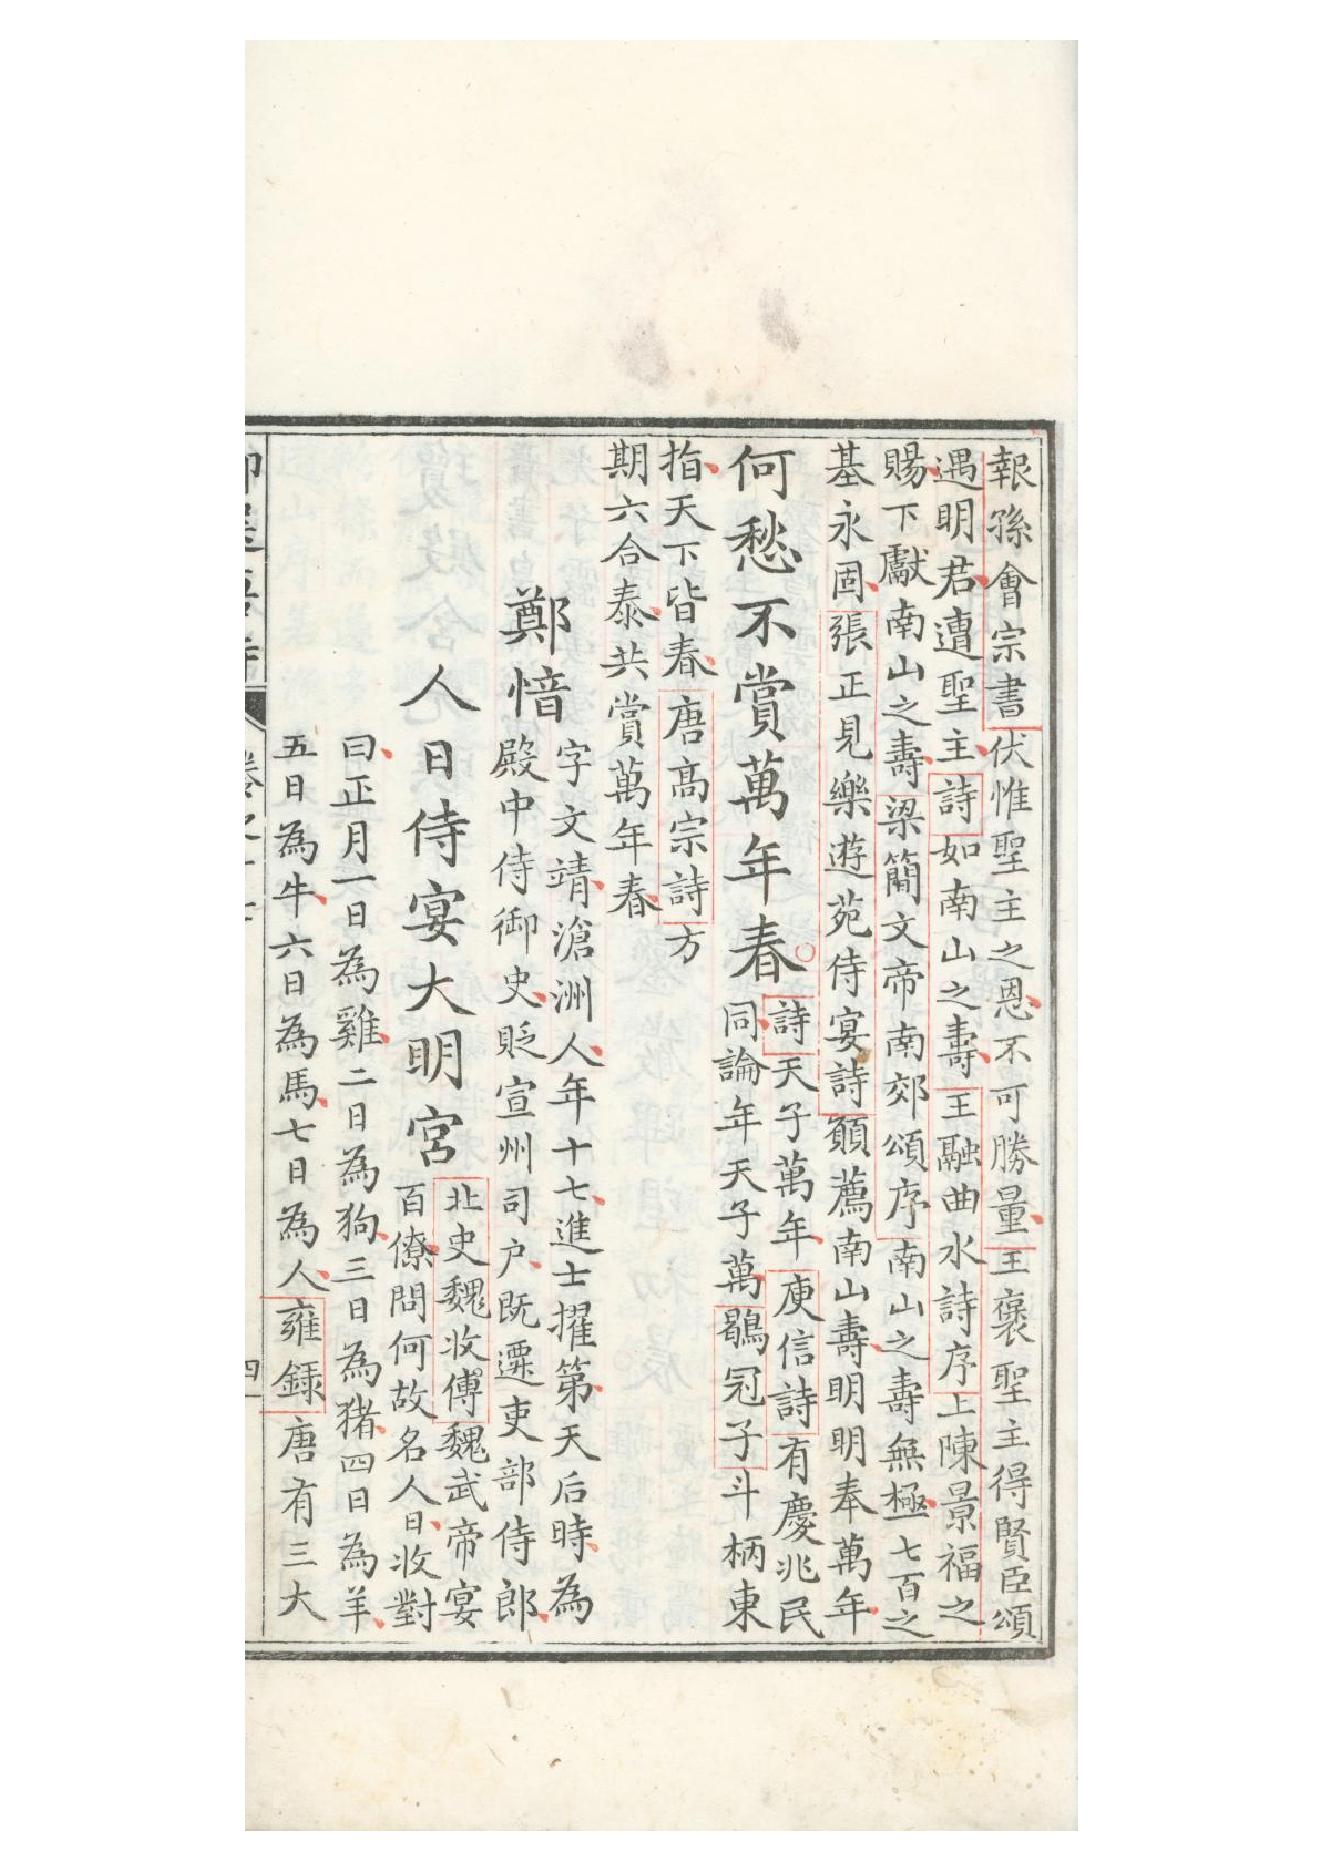 報孫會宗書伏惟聖主之恩不可勝量王褒聖主得賢臣頌
遇明君遭聖主詩如南山之壽王融曲水詩序上陳景福之
賜下獻南山之壽梁簡文帝南郊頌序南山之壽無極七百之
基永固張正見樂遊苑侍宴詩願薦南山壽明明奉萬年
何愁不賞萬年春
詩天子萬年庾信詩有慶兆民
同論年天子萬鶡冠子斗柄東
指天下皆春唐高宗詩方
期六合泰共賞萬年春
鄭愔
字文靖滄洲人年十七進士擢第天后時為
殿中侍御史貶宣州司户既遷吏部侍郎
人日侍宴大明宮
北史魏收傳魏武帝宴
百僚問何故名人日收對
曰正月一日為雞二日為狗三日為猪四日為羊
五日為牛六日為馬七日為人雍録唐有三大